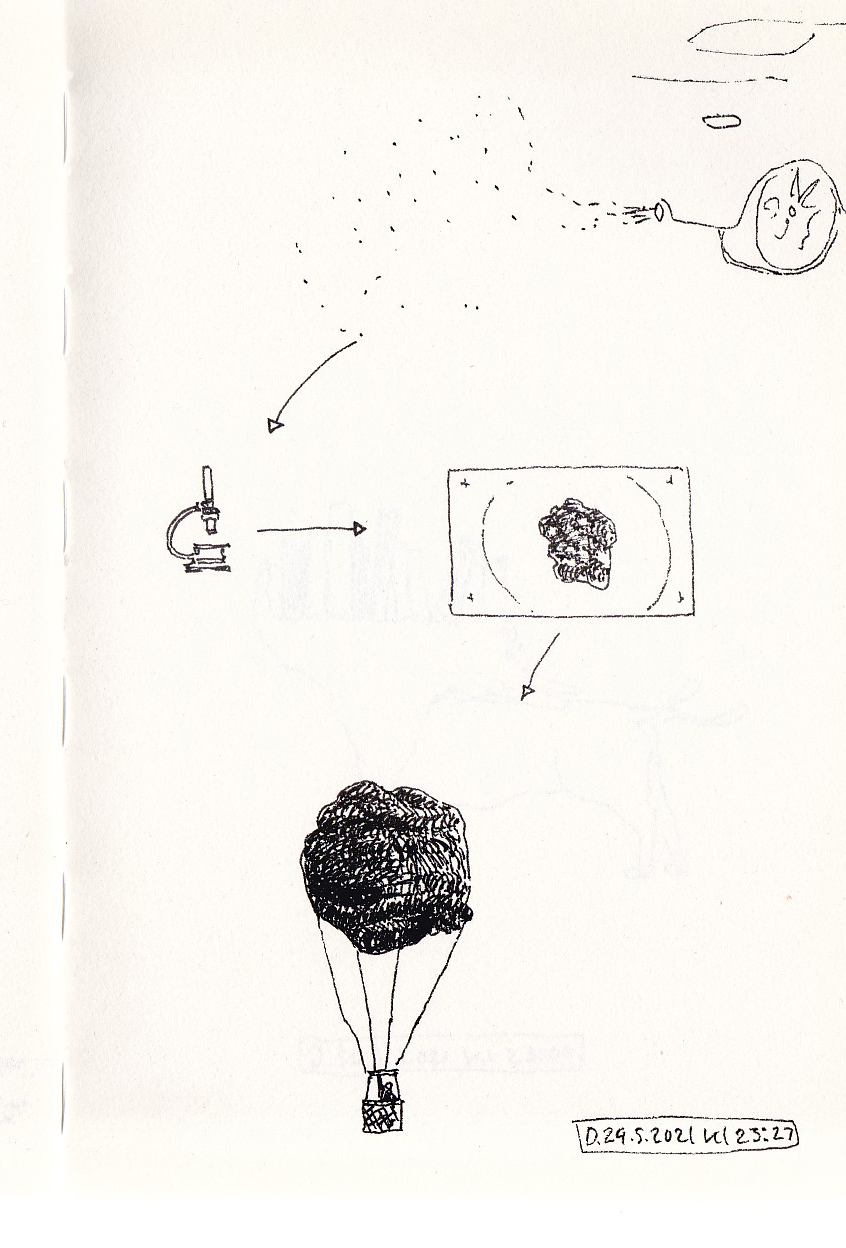 D.29.5.2021 Kl 23:27